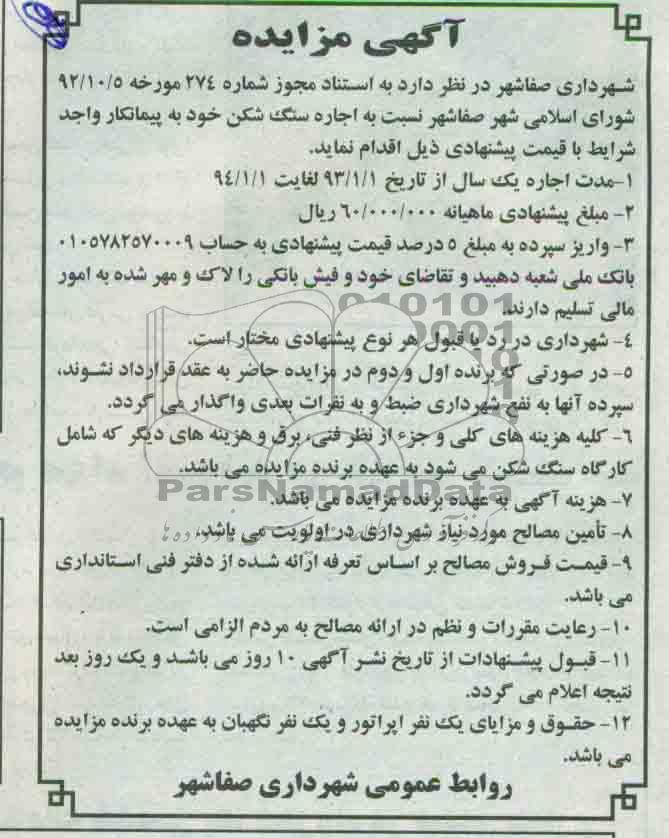 آگهی مزایده
شهرداری صفاشهر در نظر دارد به استناد مجوز شماره ۲۷٤ مورخه ۹۲/۱۰/۵
شورای اسلامی شهر صفاشهر نسبت به اجاره سنگ شکن خود به پیمانکار واجد
شرایط با قیمت پیشنهادی ذیل اقدام نماید.
۱-مدت اجاره یک سال از تاریخ ۹۳/۱/۱ لغایت ۹٤/۱/۱
۲- مبلغ پیشنهادی ماهیانه ٦۰/۰۰۰/۰۰۰ ریال
۳- واریز سپرده به مبلغ ۵ درصد قیمت پیشنهادی به حساب ۰۱۰۵۷۸۲۵۷۰۰۰۹
بانک ملی شعبه دهبید و تقاضای خود و فیش بانکی را لاک و مهر شده به امور
مالی تسلیم دارند.
٤- شهرداری در رد یا قبول هر نوع پیشنهادی مختار است.
۵- در صورتی که برنده اول و دوم در مزایده حاضر به عقد قرارداد نشوند،
سپرده آنها به نفع شهرداری ضبط و به نفرات بعدی واگذار می گردد.
٦- کلیه هزینه های کلی و جزء از نظر فنی، برق و هزینه های دیگر که شامل
کارگاه سنگ شکن می شود به عهده برنده مزایده می باشد.
ParsNamadData
۷- هزینه آگهی به عهده برنده مزایده می باشد.
۸- تأمین مصالح مورد نیاز شهرداری در اولویت می باشد.
۹- قیمت فروش مصالح بر اساس تعرفه ارائه شده از دفتر فنی استانداری
می باشد.
۱۰- رعایت مقررات و نظم در ارائه مصالح به مردم الزامی است.
۱۱- قبول پیشنهادات از تاریخ نشر آگهی ۱۰ روز می باشد و یک روز بعد
نتیجه اعلام می گردد.
۱۲- حقوق و مزایای یک نفر اپراتور و یک نفر نگهبان به عهده برنده مزایده
می باشد.
روابط عمومی شهرداری صفاشهر